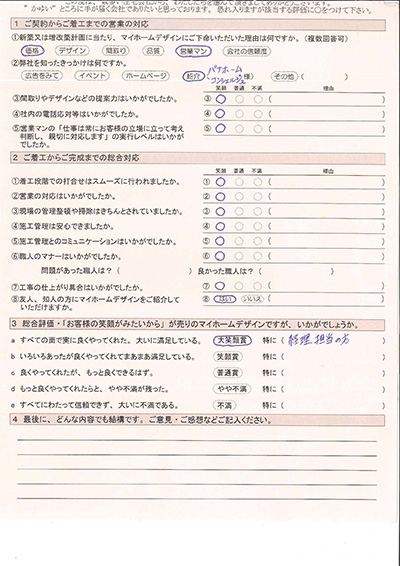 "かゆい" ところに手が届く会社でありたいと思っております。 恐れ入りますが該当する評価に○をつけて下さい。
1 ご契約からご着工までの営業の対応
①新築又は増改築計画に当たり、マイホームデザインにご下命いただいた理由は何ですか。(複数回答可)
価格 デザイン 間取り 品質 営業マン 会社の信頼度
②弊社を知ったきっかけは何ですか。
広告をみて イベント ホームページ 紹介 ( パナホーム コンシェルジュ 様) その他 ( )
笑顔 普通 不満 理由
③間取りやデザインなどの提案力はいかがでしたか。 ③ ( )
④社内の電話応対等はいかがでしたか。 ④ ( )
⑤営業マンの「仕事は常にお客様の立場に立って考え
判断し、親切に対応します」の実行レベルはいかが
でしたか。 ⑤ ( )
2 ご着工からご完成までの総合対応
笑顔 普通 不満 理由
①着工段階での打合せはスムーズに行われましたか。 ① ( )
②営業の対応はいかがでしたか。 ② ( )
③現場の管理整頓や掃除はきちんとされていましたか。 ③ ( )
④施工管理は安心できましたか。 ④ ( )
⑤施工管理とのコミュニケーションはいかがでしたか。 ⑤ ( )
⑥職人のマナーはいかがでしたか。 ⑥ ( )
問題があった職人は? ( ) 良かった職人は? ( )
⑦工事の仕上がり具合はいかがでしたか。 ⑦ ( )
⑧友人、知人の方にマイホームデザインをご紹介して
いただけますか。 ⑧ はい いいえ ( )
3 総合評価・「お客様の笑顔がみたいから」が売りのマイホームデザインですが、いかがでしょうか。
a すべての面で実に良くやってくれた。大いに満足している。 大笑顔賞 特に ( 経理担当の方 )
b いろいろあったが良くやってくれてまあまあ満足している。 笑顔賞 特に ( )
c 良くやってくれたが、もっと良くできるはず。 普通賞 特に ( )
d もっと良くやってくれたらと、やや不満が残った。 やや不満 特に ( )
e すべてにわたって信頼できず、大いに不満である。 不満 特に ( )
4 最後に、どんな内容でも結構です。ご意見・ご感想などご記入ください。